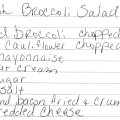 Broccoli Salad
broccoli chopped
cauliflower chopped
mayonnaise
cream
sugar
salt
bacon fried + crum
cheese